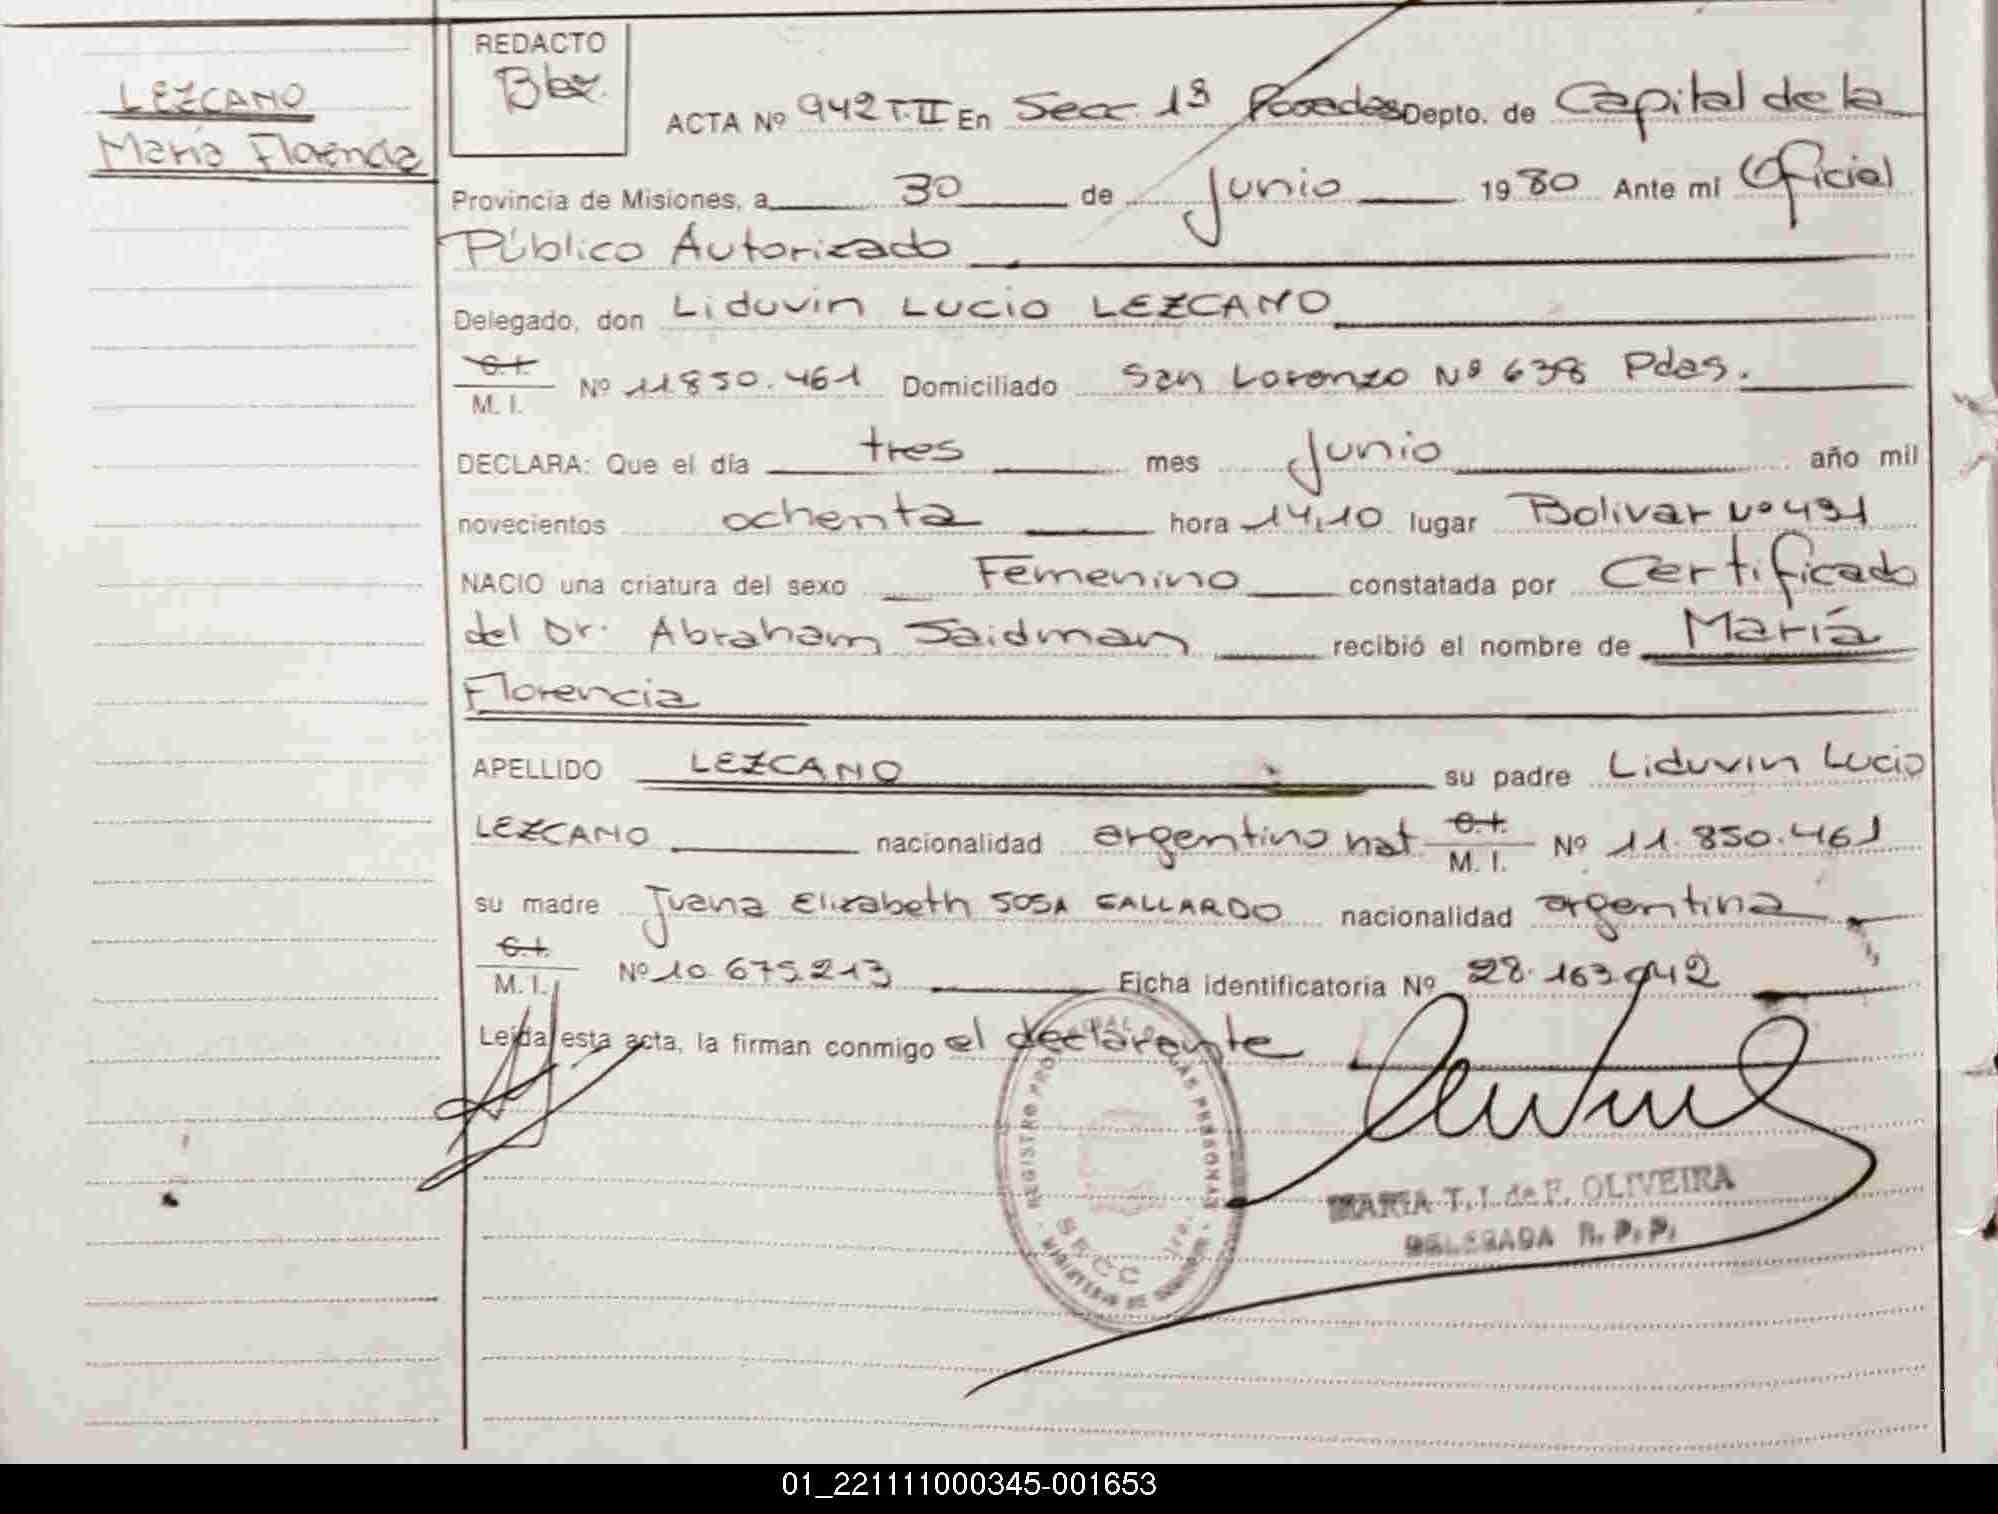 LEZCANO
María Florencia
REDACTO
ACTA Nº 942 T.II En Secc. 1ª Posadas Depto. de Capital de la
Provincia de Misiones, a 30 de Junio 1980 Ante mi Oficial
Público Autorizado
Delegado, don Liduvin Lucio LEZCANO
C.I.
M. I. Nº 11850.461 Domiciliado San Lorenzo Nº 638 Pdas.
DECLARA: Que el día tres mes Junio año mil
novecientos ochenta hora 14,10 lugar Bolivar Nº 491
NACIO una criatura del sexo Femenino constatada por Certificado
del Dr. Abraham Saidman recibió el nombre de María
Florencia
APELLIDO LEZCANO su padre Liduvin Lucio
LEZCANO nacionalidad argentino nat C.I. M. I. Nº 11.850.461
su madre Juana Elizabeth SOSA GALLARDO nacionalidad argentina
C.I.
M. I. Nº 10.675.213 Ficha identificatoria Nº 28.163.942
Leída esta acta, la firman conmigo el declarante
REGISTRO PROVINCIAL DE LAS PERSONAS
MINISTERIO DE GOBIERNO
SECC. 1ra.
MARIA T. I. de F. OLIVEIRA
DELEGADA R. P. P.
01_221111000345-001653